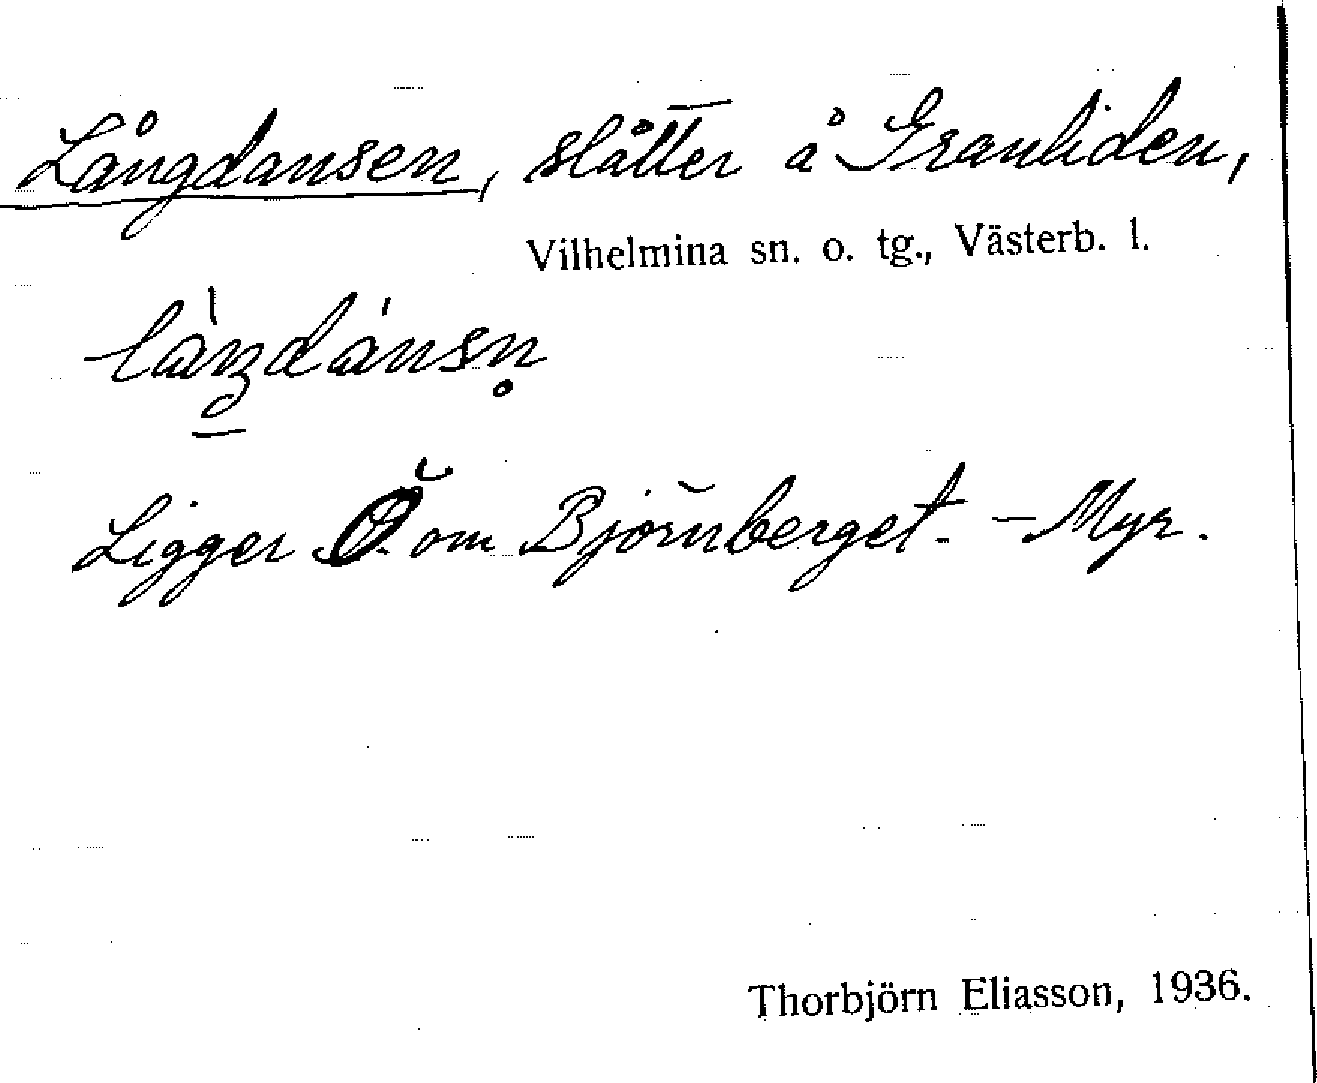 Långdansen, slåtter å Granliden,
Vilhelmina sn. o. tg., Västerb. l.
Ligger Ö. om Björnberget. – Myr.
Thorbjörn Eliasson, 1936.